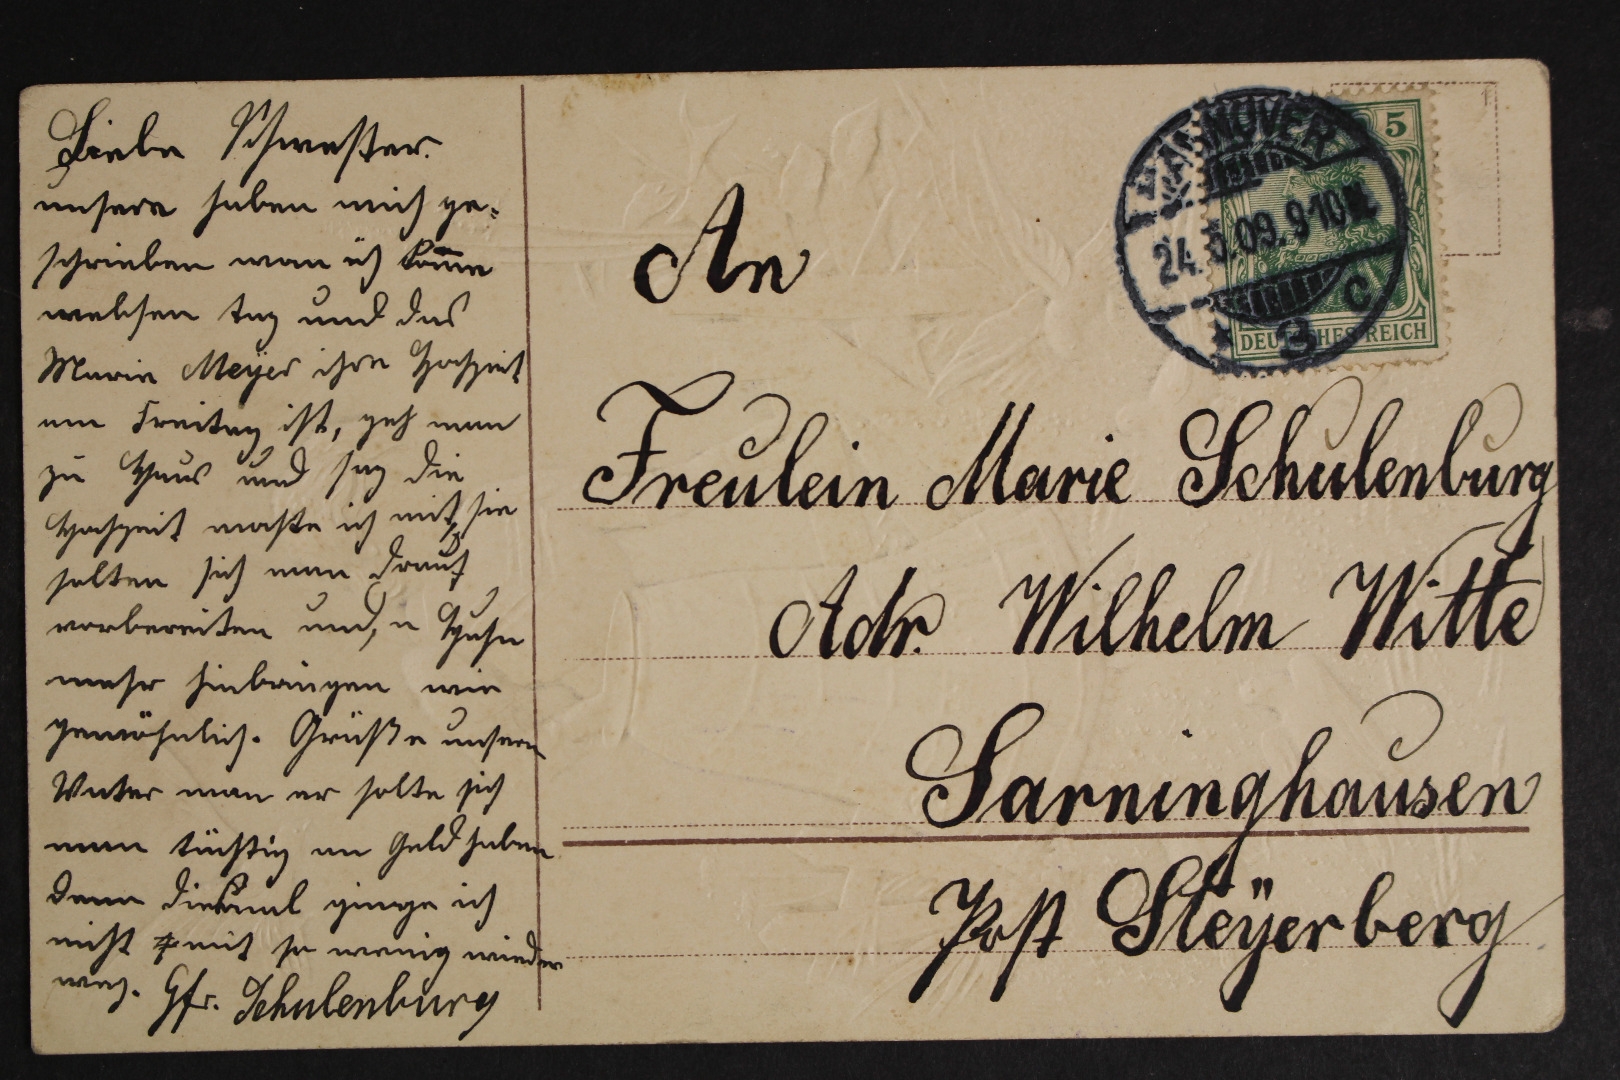 Liebe Schwester.
unsere haben mich ge-
schrieben wan ich komme
welchen tag und das
Marie Meyer ihre Hochzeit
am Freitag ist, geh man
zu Haus und sag die
Hochzeit maßte ich mit, sie
solten sich man drauf
vorbereiten und, n Huhn
mehr hinbringen wie
gewöhnlich. Grüße unsern
Vater man er solte sich
man tüchtig an Geld haben
denn diesmal ginge ich
nicht mit so wenig wieder
weg. Schulenburg
An
Freulein Marie Schulenburg
Adr. Wilhelm Witte
Sarninghausen
Post Steÿerberg
HANNOVER
24. 09. 9-10
3 c
5
DEUTSCHES REICH